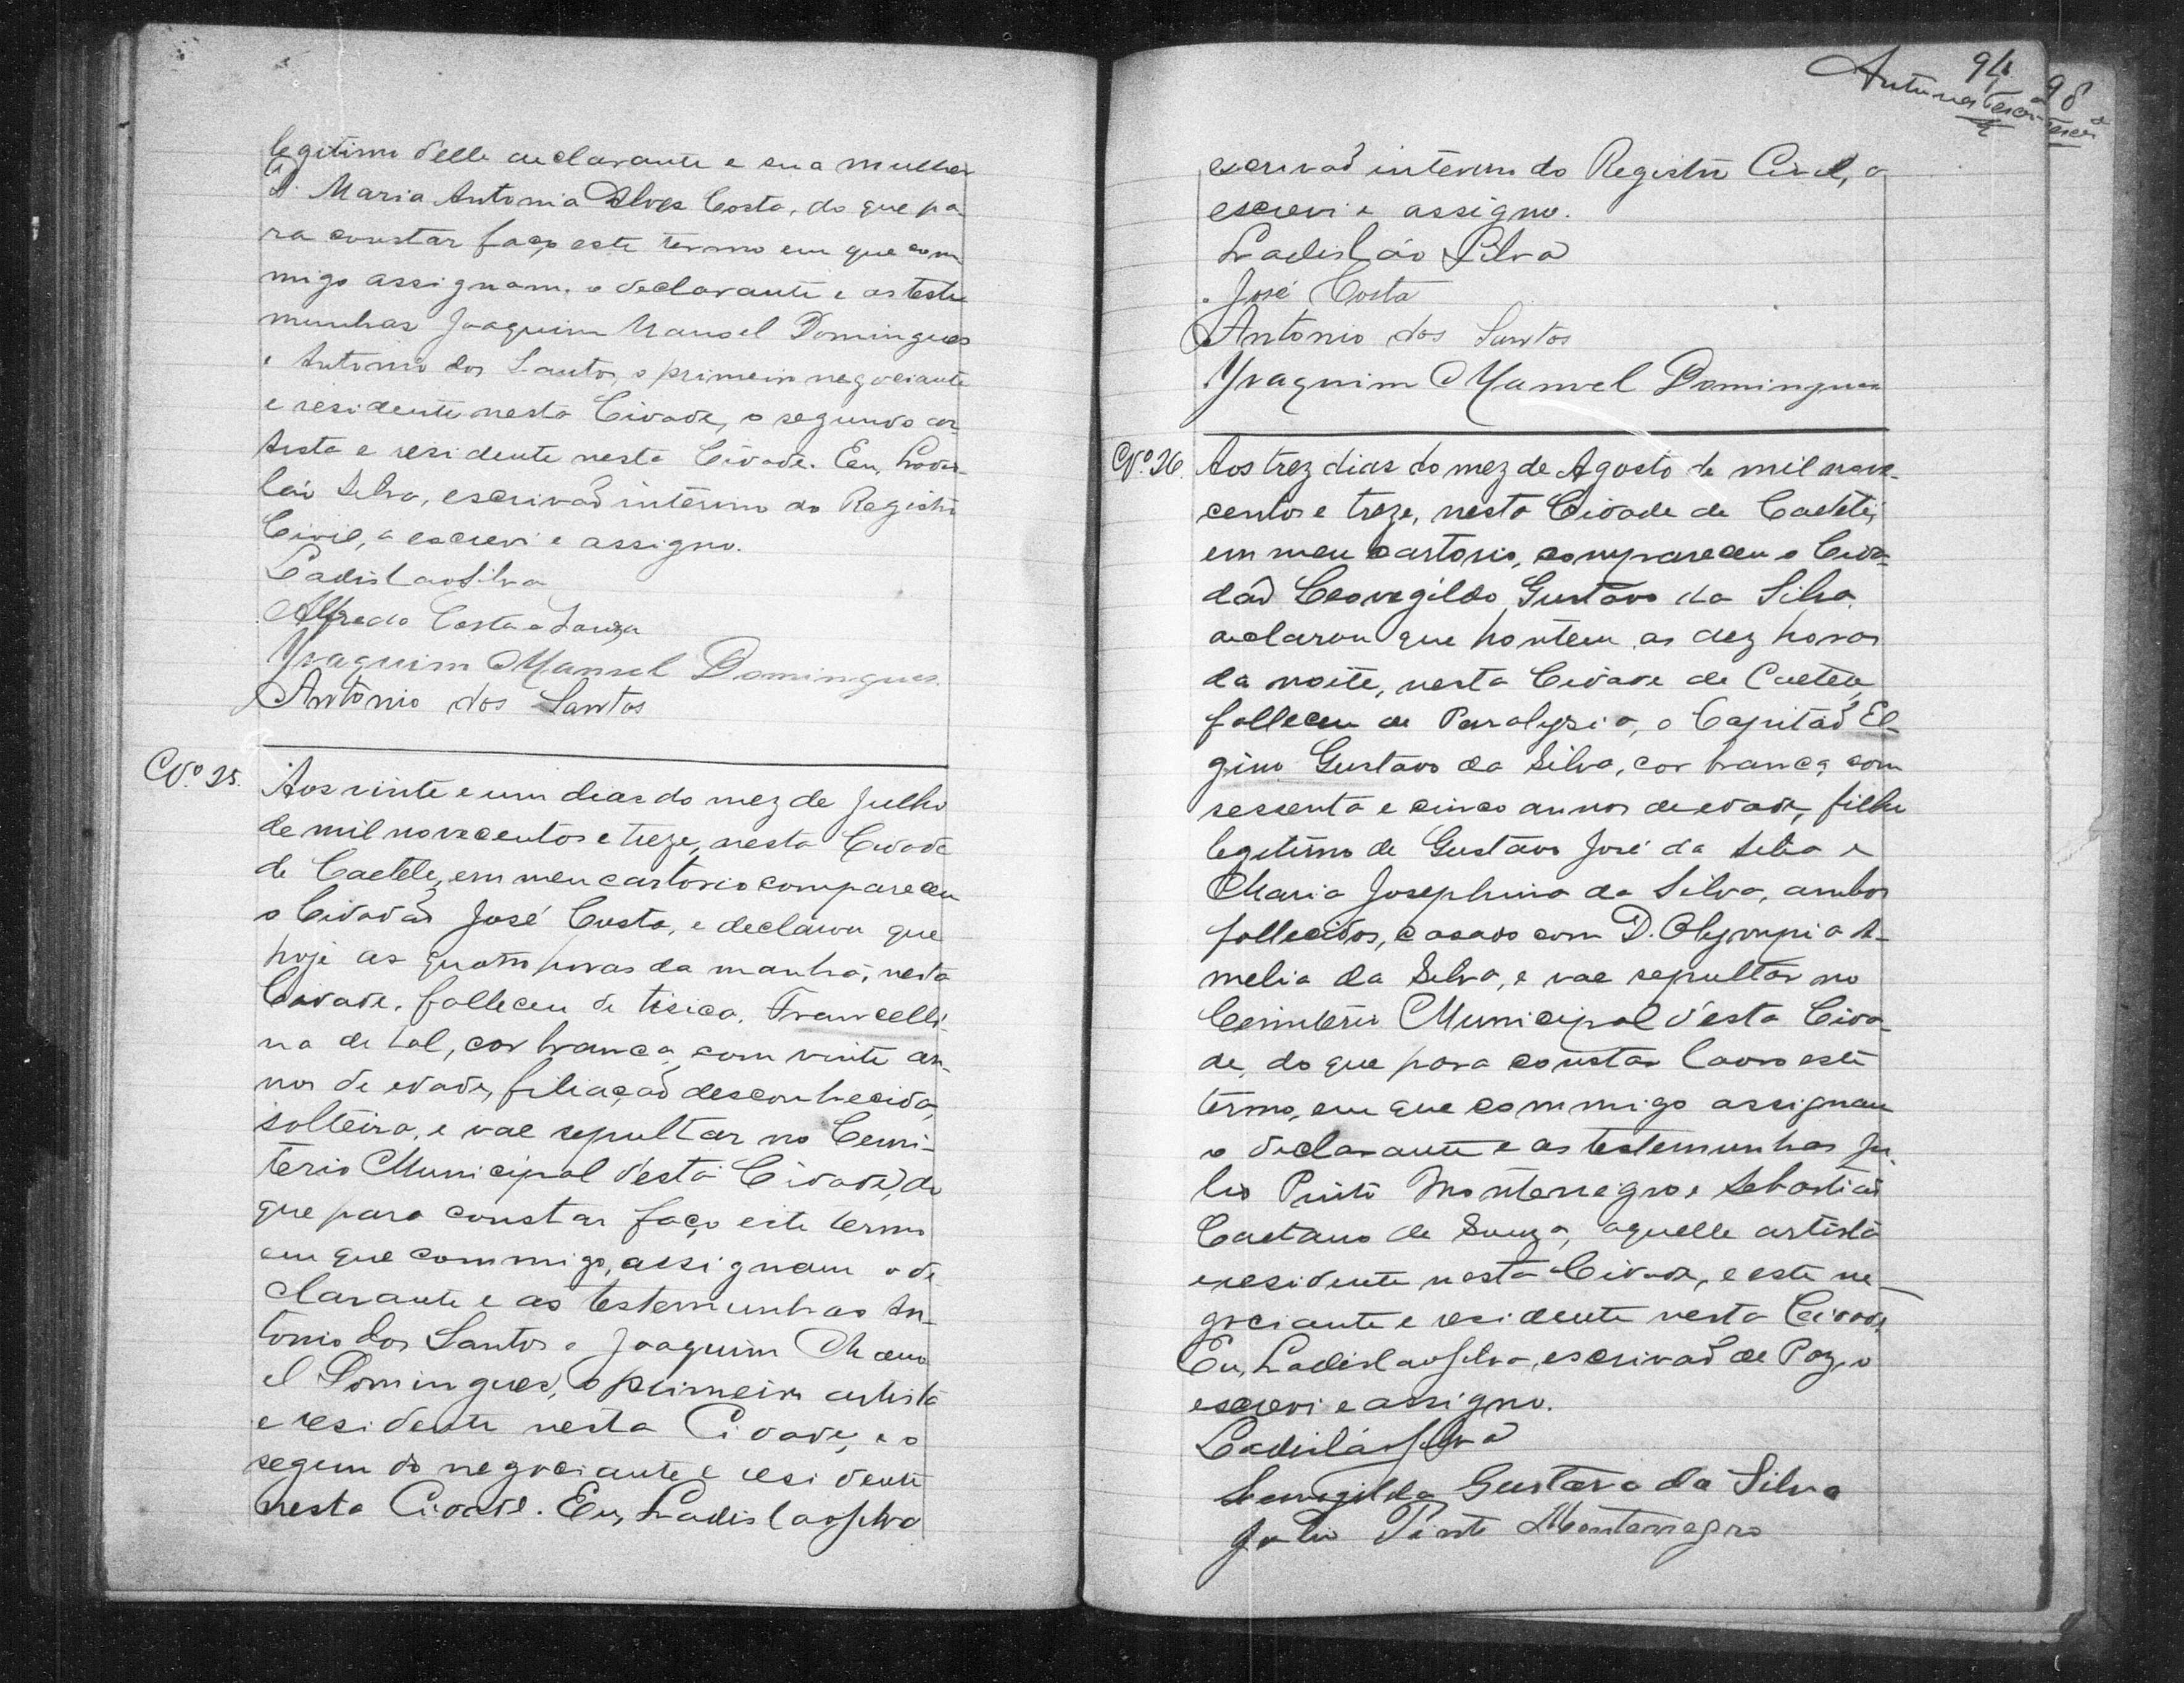 legitimo delle declarante e sua mulher
D. Maria Antonia Alves Costa, do que pa-
ra constar faço este termo em que com
migo assignam. o declarante e as teste
munhas Joaquim Manoel Domingues
e Antonio dos Santos, o primeiro negociante
e residente nesta Cidade, o segundo ar-
tista e residente nesta Cidade. Eu, Ladis-
láo Silva, escrivaõ interino do Registro
Civil, o escrevi e assigno.
Ladislao Silva
Alfredo Costa e Souza
Joaquim Manoel Domingues.
Antonio dos Santos
Nº 25.
Aos vinte e um dias do mez de Julho
de mil novecentos e treze, nesta Cidade
de Caeteté, em meu cartorio compareceu
o Cidadaõ José Costa, e declarou que
hoje as quatro horas da manhã, nesta
Cidade, falleceu de tisica, Francelli-
na de tal, cor branca, com vinte an-
nos de edade, filiaçaõ desconhecida,
solteira, e vae sepultar no Cemi-
terio Municipal desta Cidade, do
que para constar faço este termo
em que commigo, assignam o de-
clarante e as testemunhas An-
tonio dos Santos e Joaquim Mano
el Domingues, o primeiro artista
e residente nesta Cidade, e o
segundo negociante e residente
nesta Cidade. Eu, Ladislao Silva
94
98
Antunes
escrivaõ interino do Registro Civil, o
escrevi e assigno.
Ladisláo Silva
José Costa
Antonio dos Santos
Joaquim Manoel Domingues
Nº 26.
Aos trez dias do mez de Agosto de mil nove-
centos e treze, nesta Cidade de Caeteté,
em meu cartorio, compareceu o Cida-
daõ Leovegildo Gustavo da Silva,
declarou que hontem as dez horas
da noite, nesta Cidade de Caeteté,
falleceu de Paralysia, o Capitaõ El-
gino Gustavo da Silva, cor branca, com
sessenta e cinco annos de edade, filho
legitimo de Gustavo José da Silva e
Maria Josephina da Silva, ambos
fallecidos, casado com D. Olympia A-
melia da Silva, e vae sepultar no
Cemiterio Municipal d'esta Cida-
de, do que para constar lavro este
termo, em que commigo assignam
o declarante e as testemunhas Ju-
lio Pinto Montenegro e Sebastiaõ
Caetano de Souza, aquelle artista
e residente nesta Cidade, e este ne-
gociante e residente nesta Cidade,
Eu, Ladislao Silva, escrivaõ de Paz, o
escrevi e assigno.
Ladisláo Silva
Leovegildo Gustavo da Silva
Julio Pinto Montenegro